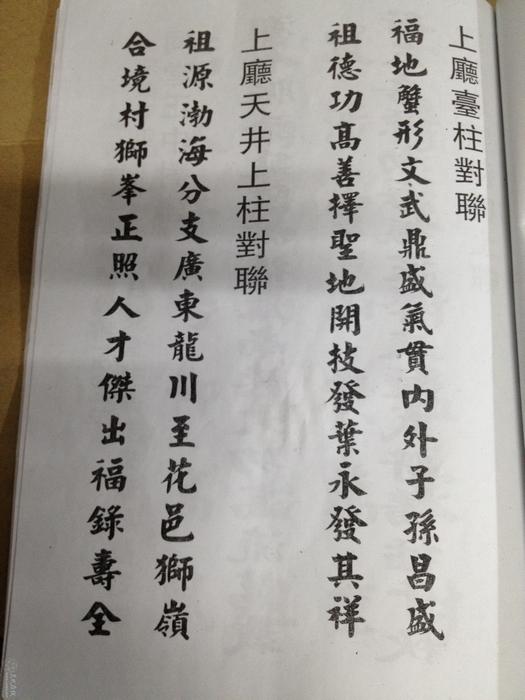 上廳臺柱對聯
福地蟹形文武鼎盛氣貫內外子孫昌盛
祖德功高善擇聖地開技發葉永發其祥
上廳天井上柱對聯
祖源渤海分支廣東龍川至花邑獅嶺
合境村獅峯正照人才傑出福錄壽全